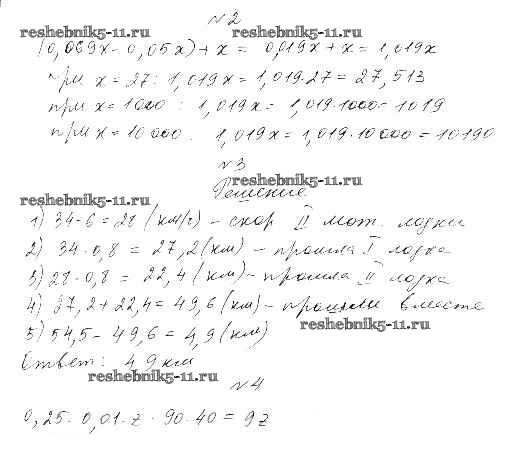 №2
reshebnik5-11.ru reshebnik5-11.ru
(0,069x - 0,05x) + x = 0,019x + x = 1,019x
при x = 27: 1,019x = 1,019·27 = 27,513
при x = 1000 : 1,019x = 1,019·1000 = 1019
при x = 10 000. 1,019x = 1,019·10 000 = 10190
№3
reshebnik5-11.ru
Решение
reshebnik5-11.ru
1) 34 - 6 = 28 (км/г) - скор II мот. лодки
2) 34·0,8 = 27,2 (км) - прошла I лодка
3) 28·0,8 = 22,4 (км) - прошла II лодка
4) 27,2 + 22,4 = 49,6 (км) - прошли вместе
reshebnik5-11.ru
5) 54,5 - 49,6 = 4,9 (км)
Ответ: 4 9 км
reshebnik5-11.ru
№4
0,25·0,01·z·90·40 = 9z